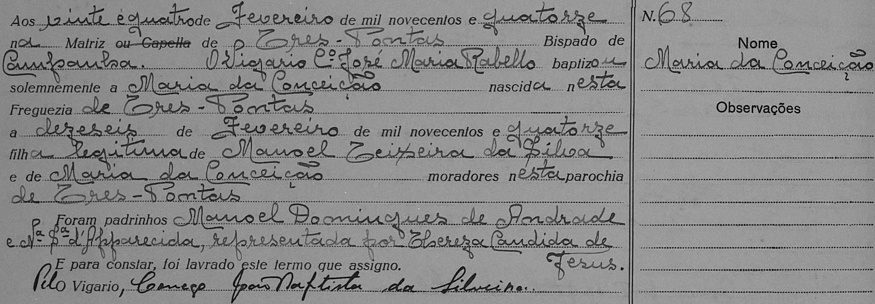 Aos vinte e quatro de Fevereiro de mil novecentos e quatorze
na Matriz ou Capella de Tres-Pontas Bispado de
Campanha. O Vigario Cº José Maria Rabello baptizou
solemnemente a Maria da Conceição nascida nesta
Freguezia de Tres-Pontas
a dezeseis de Fevereiro de mil novecentos e quatorze
filha legitima de Manoel Teixeira da Silva
e de Maria da Conceição moradores nesta parochia
de Tres-Pontas
Foram padrinhos Manoel Domingues de Andrade
e Nª Sª d'Apparecida, representada por Thereza Candida de
Jesus.
E para constar, foi lavrado este termo que assigno.
Pelo Vigario, Conego João Baptista da Silveira.
N. 68
Nome
Maria da Conceição
Observações